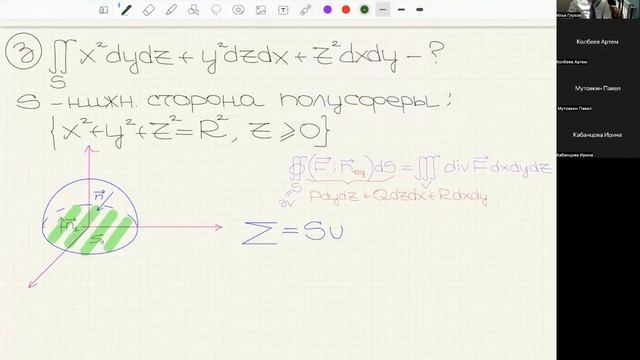 3) ∬ x²dydz + y²dzdx + z²dxdy - ?
S
S - нижн. сторона полусферы:
{x²+y²+z²=R², z ⩾ 0}
∯ (F⃗; n⃗ ед.) dS = ∭ div F⃗ dxdydz
S
∂V
V
Pdydz + Qdzdx + Rdxdy
n⃗
n⃗₁
S₁
Σ = S∪
Илья Глухов
Колбеев Артем
Колбеев Артем
Мутовкин Павел
Мутовкин Павел
Кабанцова Ирина
Кабанцова Ирина